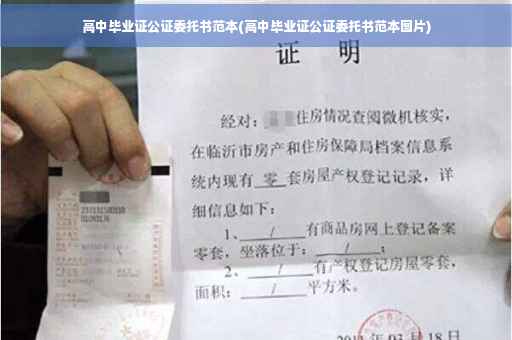 高中毕业证公证委托书范本(高中毕业证公证委托书范本图片)
证 明
经对：住房情况查阅微机核实，
在临沂市房产和住房保障局档案信息系
统内现有 零 套房屋产权登记记录，详
细信息如下：
1、 / 有商品房网上登记备案
零套，坐落位于： / ；
2、 / 有产权登记房屋零套，
面积： / 平方米。
年 03 月 18 日